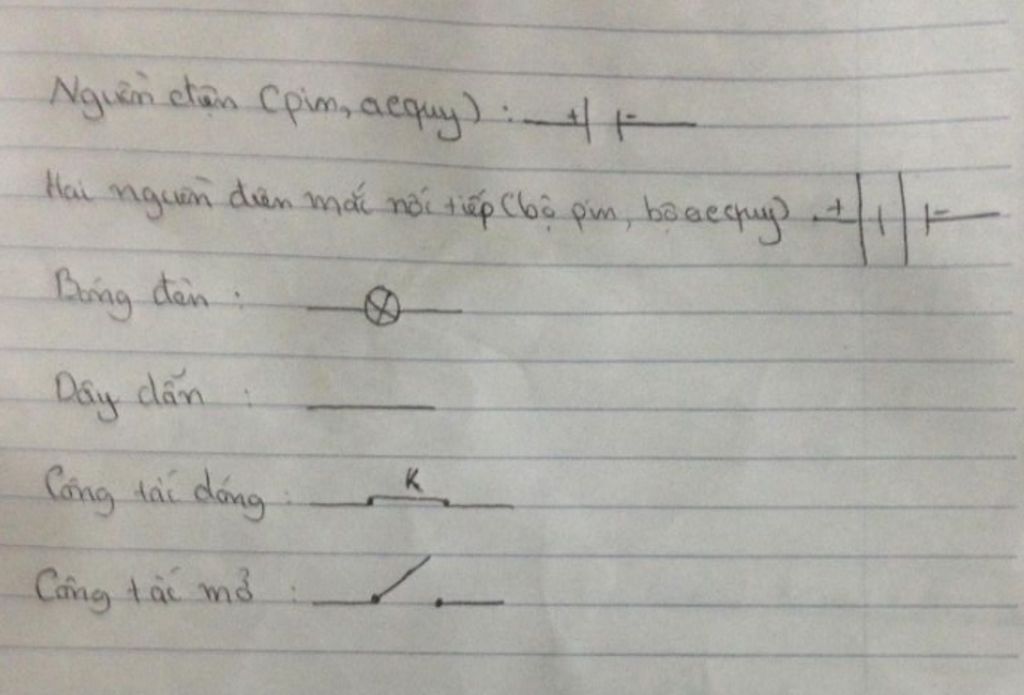 Nguồn điện (pim, acquy) : + -
Hai nguồn điện mắc nối tiếp (bộ pim, bộ acquy) + -
Bóng đèn :
Dây dẫn :
K
Công tắc đóng :
Công tắc mở :